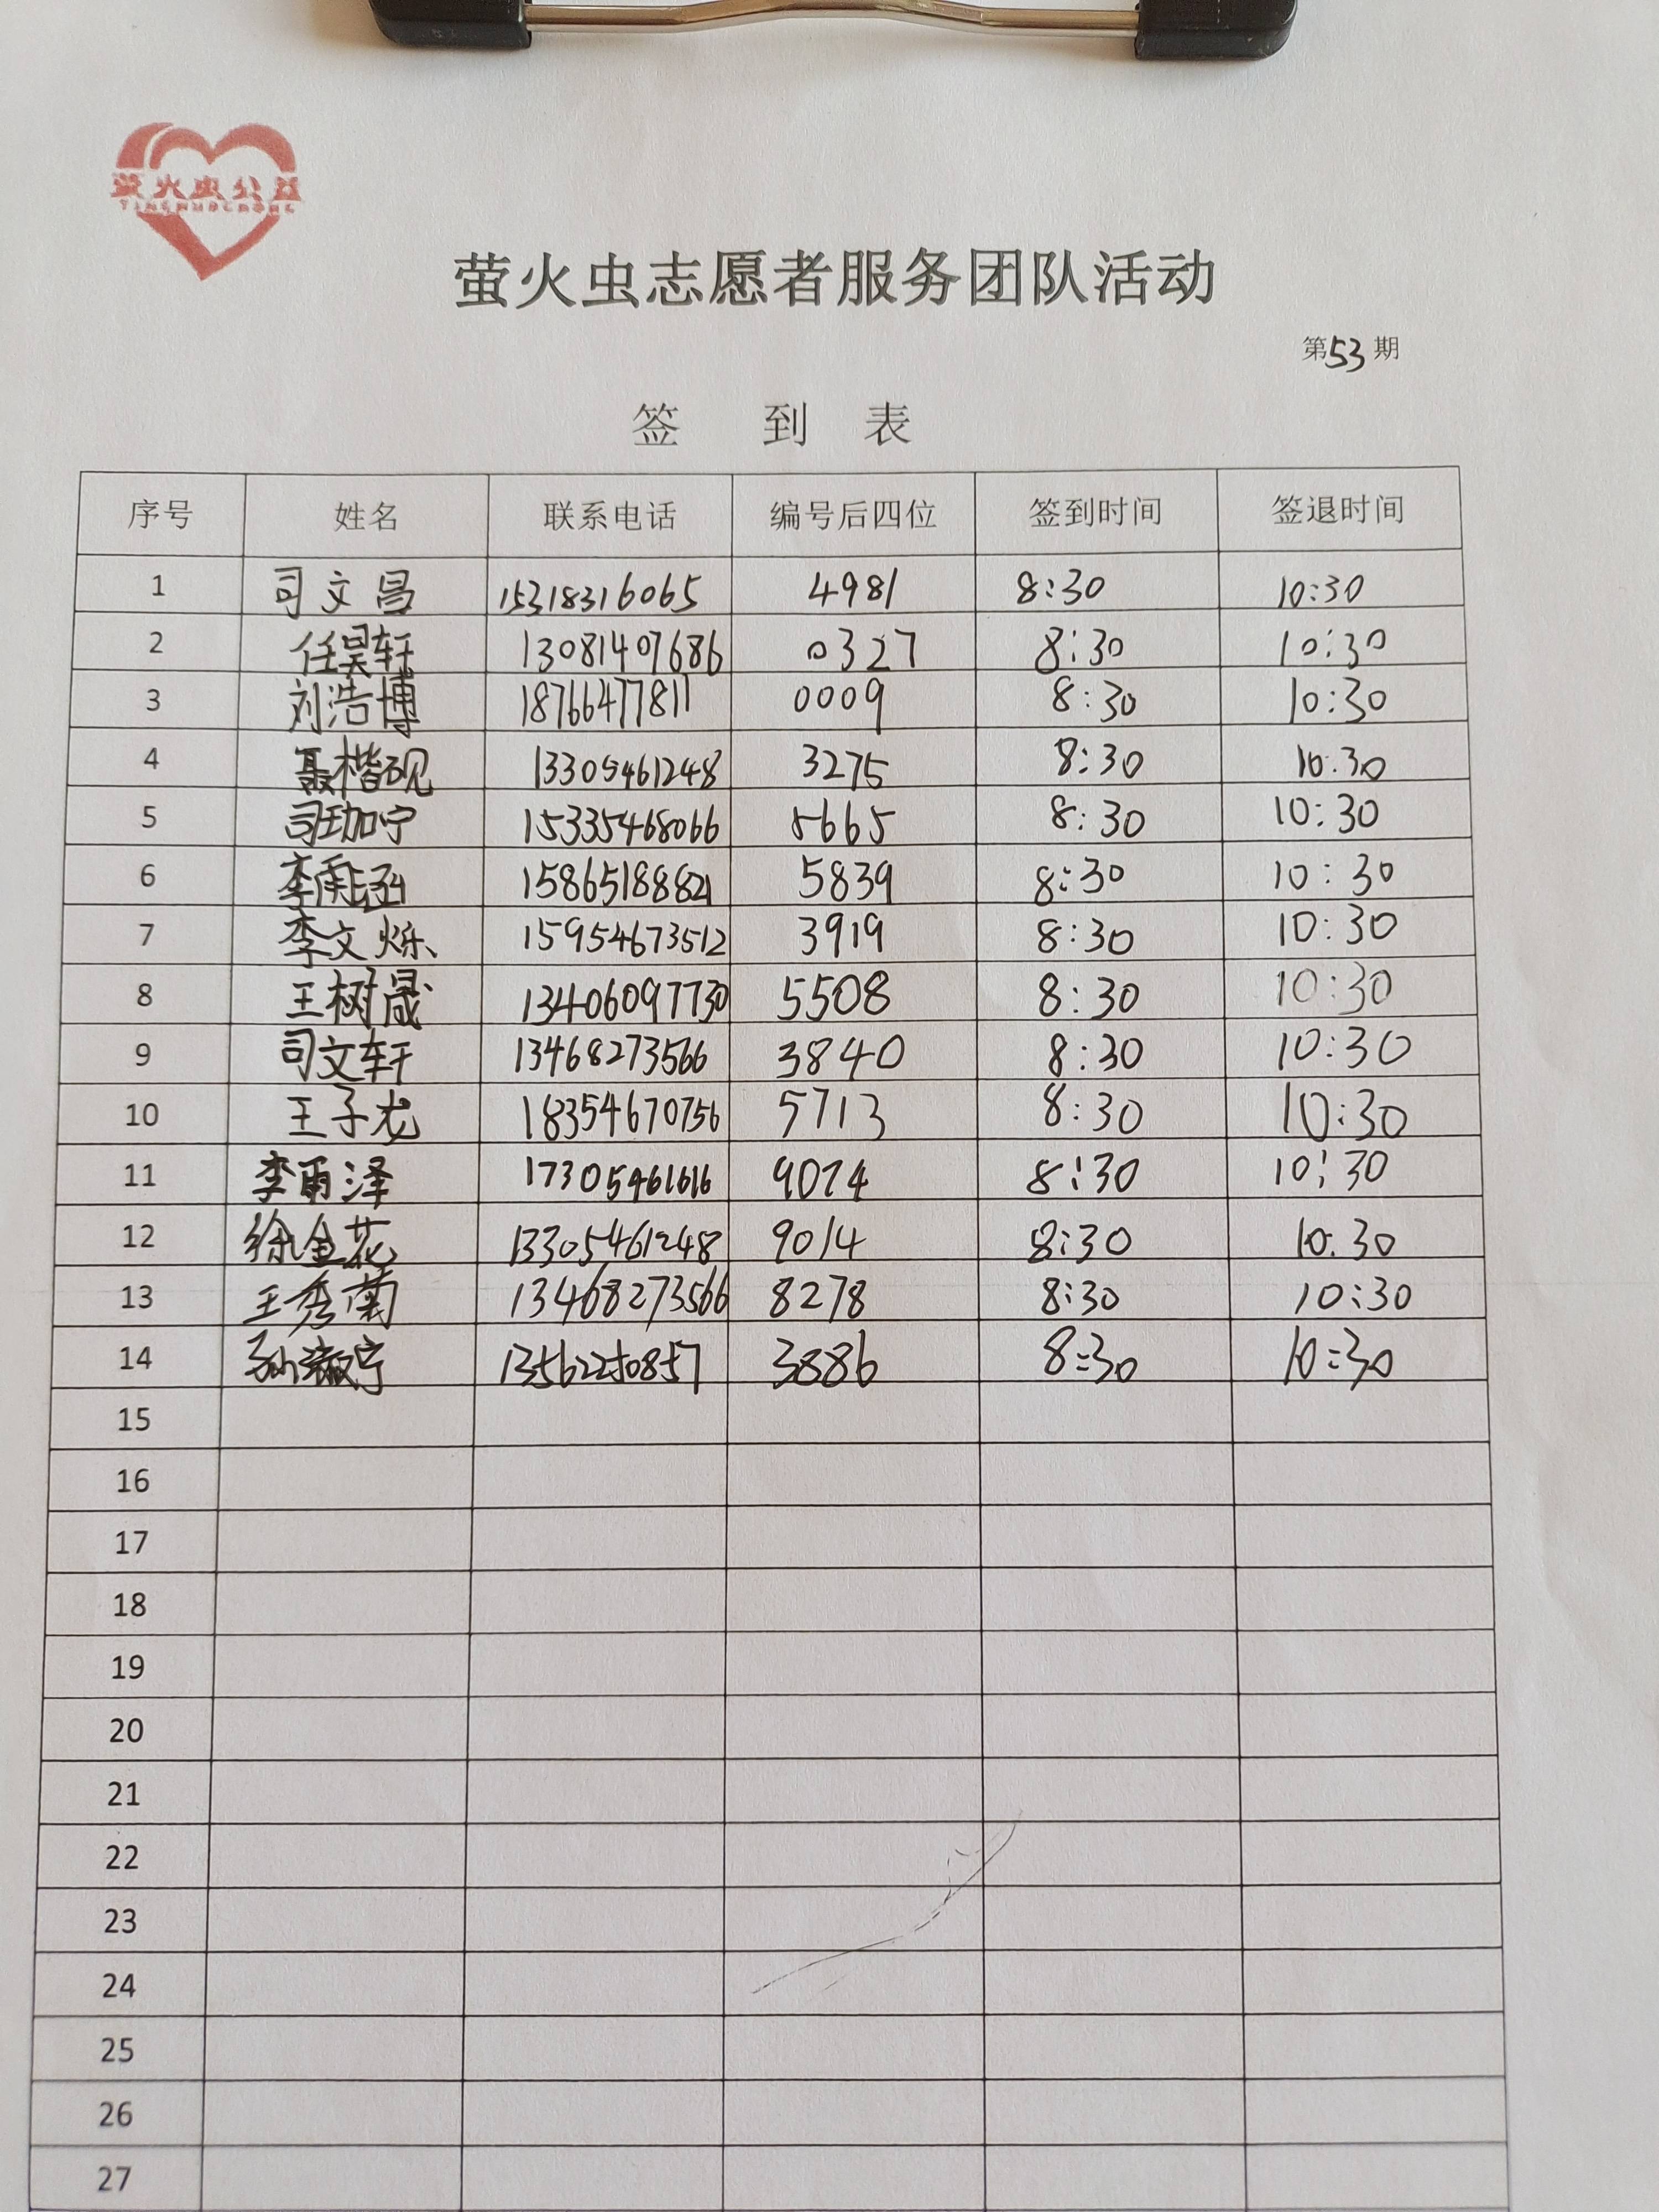 萤火虫公益
YINGHUOCHONG
萤火虫志愿者服务团队活动
第53期
签 到 表
序号 姓名 联系电话 编号后四位 签到时间 签退时间
1 司文昌 15318316065 4981 8:30 10:30
2 任昊轩 13081407686 0327 8:30 10:30
3 刘浩博 18766477811 0009 8:30 10:30
4 聂楷砚 13305461248 3275 8:30 10:30
5 司珈宁 15335468066 5665 8:30 10:30
6 李雨涵 15865188821 5839 8:30 10:30
7 李文烁 15954673512 3919 8:30 10:30
8 王树晟 13406097730 5508 8:30 10:30
9 司文轩 13468273566 3840 8:30 10:30
10 王子龙 18354670756 5713 8:30 10:30
11 李雨泽 17305461616 9074 8:30 10:30
12 徐金花 13305461248 9014 8:30 10.30
13 王秀兰 13468273566 8278 8:30 10:30
14 孙淑宁 13562250857 3886 8:30 10:30
15
16
17
18
19
20
21
22
23
24
25
26
27